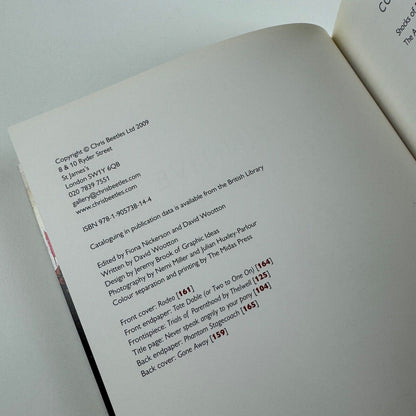 Copyright © Chris Beetles Ltd 2009
8 & 10 Ryder Street
St James's
London SW1Y 6QB
020 7839 7551
gallery@chrisbeetles.com
www.chrisbeetles.com
ISBN 978-1-905738-14-4
Cataloguing in publication data is available from the British Library
Edited by Fiona Nickerson and David Wootton
Written by David Wootton
Design by Jeremy Brook of Graphic Ideas
Photography by Nemi Miller and Julian Huxley Parlour
Colour separation and printing by The Midas Press
Front cover: Rodeo [161]
Front endpaper: Tote Doble (or Two to One On) [164]
Frontispiece: Trials of Parenthood by Thelwell [125]
Title page: Never speak angrily to your pony [104]
Back endpaper: Phantom Stagecoach [165]
Back cover: Gone Away [159]
CO
Shocks of
The A